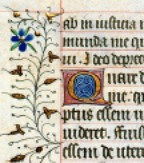 ab in iusticia
munda me qu
ni. Ideo deprec
Quare d
me: qui
ptus essem
uideret.
essem de uter